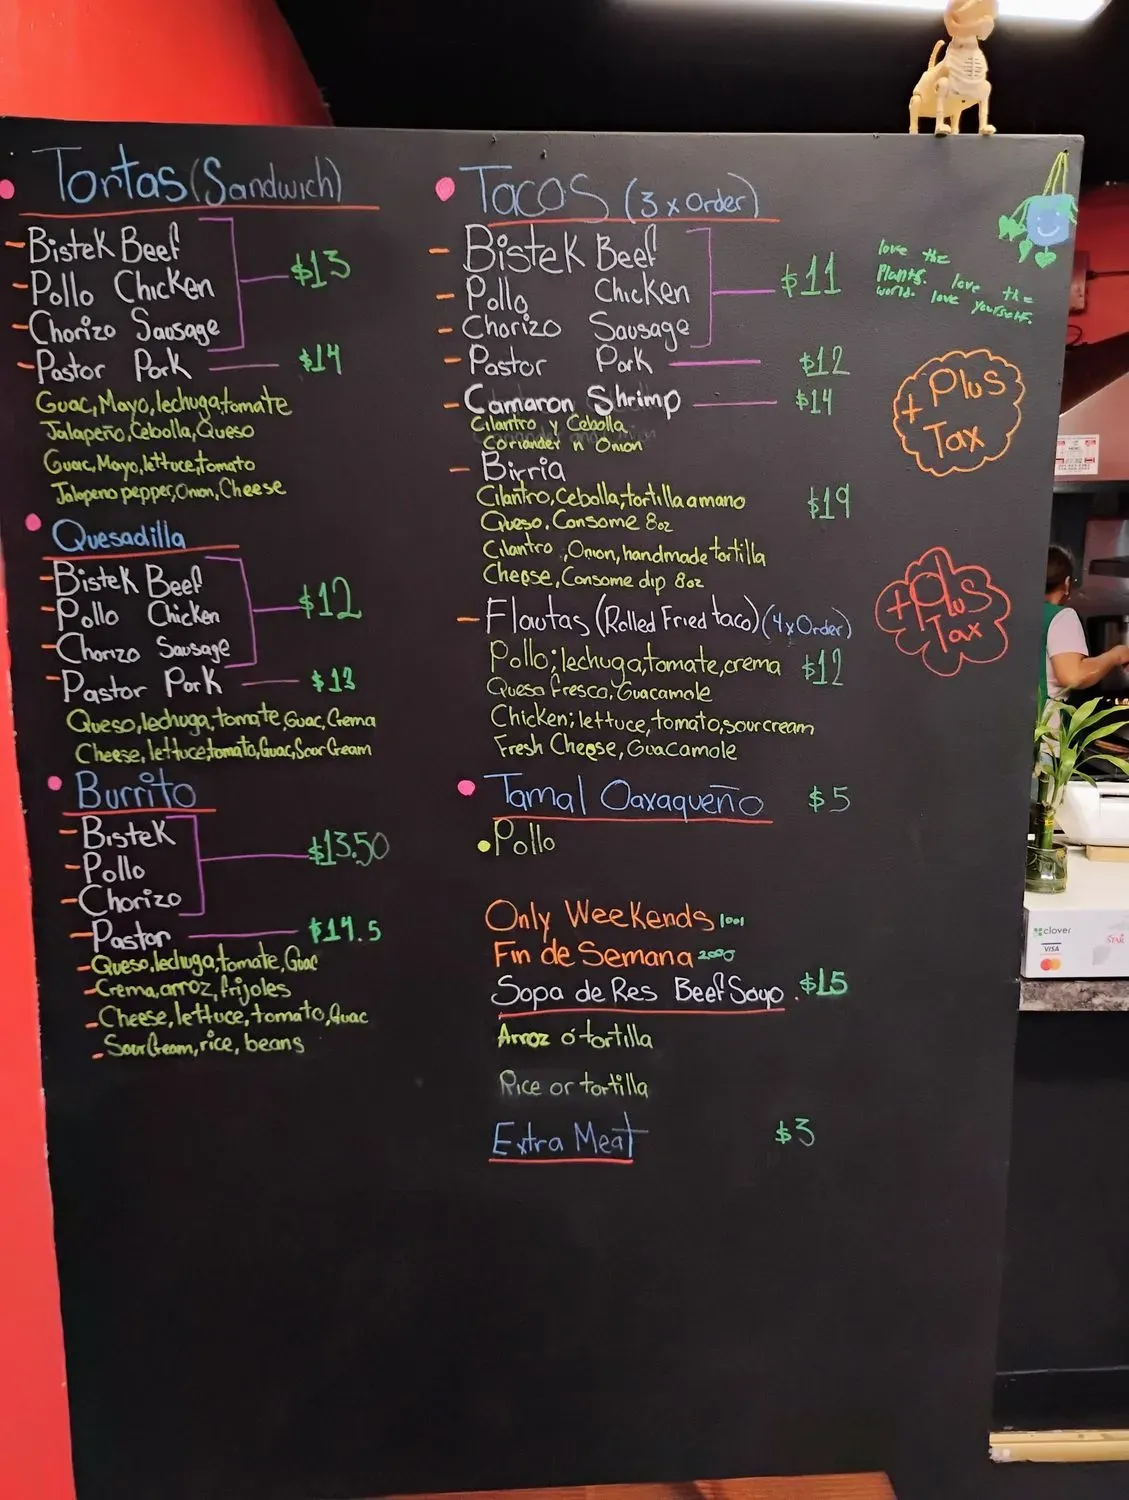 Tortas (Sandwich)
- Bistek Beef
- Pollo Chicken
- Chorizo Sausage
$13
- Pastor Pork $14
Guac, Mayo, lechuga, tomate
Jalapeño, Cebolla, Queso
Guac, Mayo, lettuce, tomato
Jalapeno pepper, Onion, Cheese
Quesadilla
- Bistek Beef
- Pollo Chicken
- Chorizo Sausage
$12
- Pastor Pork $13
Queso, lechuga, tomate, Guac, Crema
Cheese, lettuce, tomato, Guac, Sour Cream
Burrito
- Bistek
- Pollo
- Chorizo
$13.50
- Pastor $14.5
- Queso, lechuga, tomate, Guac
- Crema, arroz, frijoles
- Cheese, lettuce, tomato, Guac
- Sour Cream, rice, beans
Tacos (3 x Order)
- Bistek Beef
- Pollo Chicken
- Chorizo Sausage
$11
- Pastor Pork $12
- Camaron Shrimp $14
Cilantro y Cebolla
Coriander n Onion
- Birria
Cilantro, Cebolla, tortilla a mano $19
Queso, Consome 8oz
Cilantro, Onion, handmade tortilla
Cheese, Consome dip 8oz
- Flautas (Rolled Fried taco) (4 x Order)
Pollo; lechuga, tomate, crema $12
Queso Fresco, Guacamole
Chicken; lettuce, tomato, sour cream
Fresh Cheese, Guacamole
Tamal Oaxaqueño $5
Pollo
Only Weekends
Fin de Semana
Sopa de Res Beef Soup. $15
Arroz ó tortilla
Rice or tortilla
Extra Meat $3
love the
Plants. love the
world. love yourself.
+ Plus
Tax
+ Plus
Tax
clover
VISA
STAR